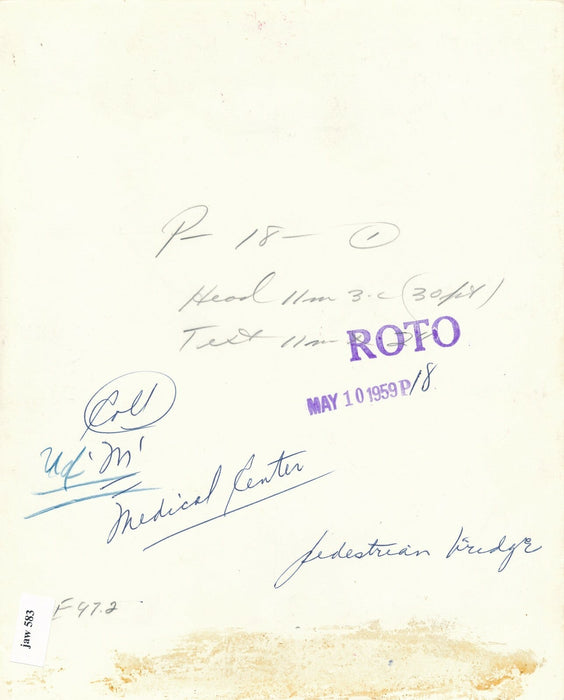 P- 18- 1
Head 11m 3-c (30pix)
Text 11m
ROTO
MAY 10 1959 P 18
Coll
U of M
Medical Center
pedestrian bridge
E 97.2
jaw 583